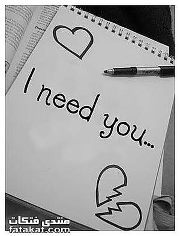 I need you...
منتدى فتكات
fatakat.com